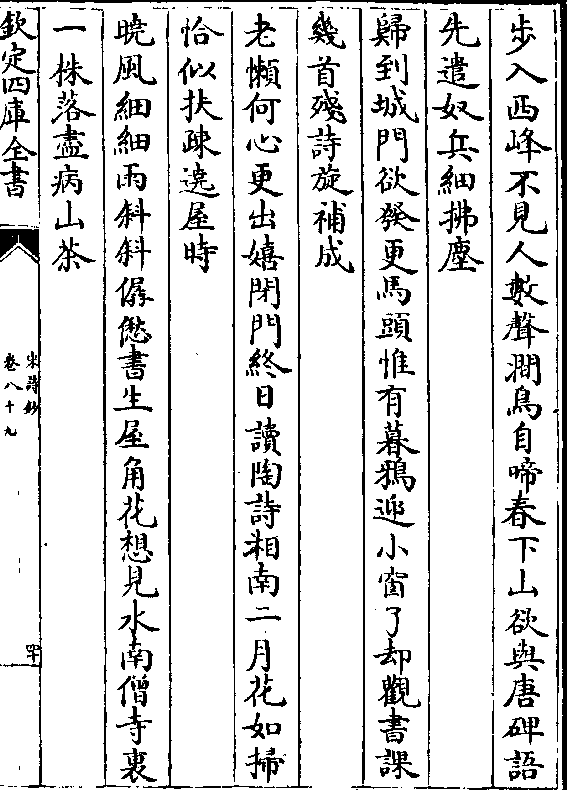 步入西峰不見人數聲澗鳥自啼春下山欲與唐碑語
先遣奴兵細拂塵
歸到城門欲發更馬頭惟有暮鴉迎小窗了却觀書課
幾首殘詩旋補成
老懶何心更出嬉閉門終日讀陶詩湘南二月花如掃
恰似扶疎遶屋時
曉風細細雨斜斜僝僽書生屋角花想見水南僧寺裏
一株落盡病山茶
欽定四庫全書
宋詩鈔
卷八十九
四十